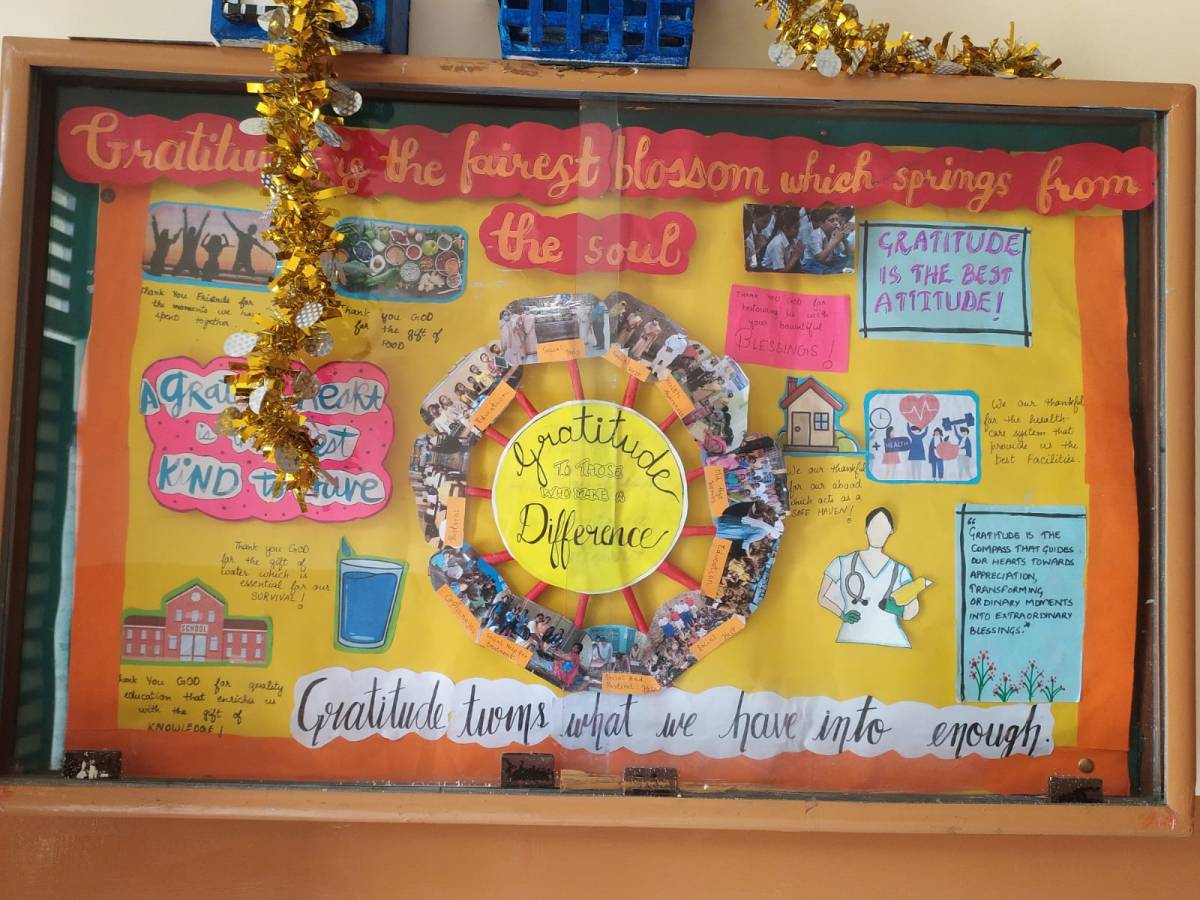 Gratitu is the fairest blossom which springs from
the soul
Thank You Friends for
the moments we ha
spent together
Thank you GOD
for the gift of
FOOD
THANK YOU GOD for
bestowing us with
your bountiful
BLESSINGS!
GRATITUDE
IS THE BEST
ATTITUDE!
A Grat Heart
is st
KIND to Have
Gratitude
TO THOSE
WHO MAKE A
Difference
Education
Pastoral
Old Age
Education
Social
Social And
We our thankful
for our abode
which acts as a
SAFE HAVEN!
HEALTH
We our thankful
for the health-
care system that
provide us the
best Facilities.
"GRATITUDE IS THE
COMPASS THAT GUIDES
OUR HEARTS TOWARDS
APPRECIATION,
TRANSFORMING
ORDINARY MOMENTS
INTO EXTRAORDINARY
BLESSINGS."
Thank you GOD
for the gift of
water which is
essential for our
SURVIVAL!
SCHOOL
Thank You GOD for quality
education that enriches us
with the gift of
KNOWLEDGE!
Gratitude turns what we have into enough.